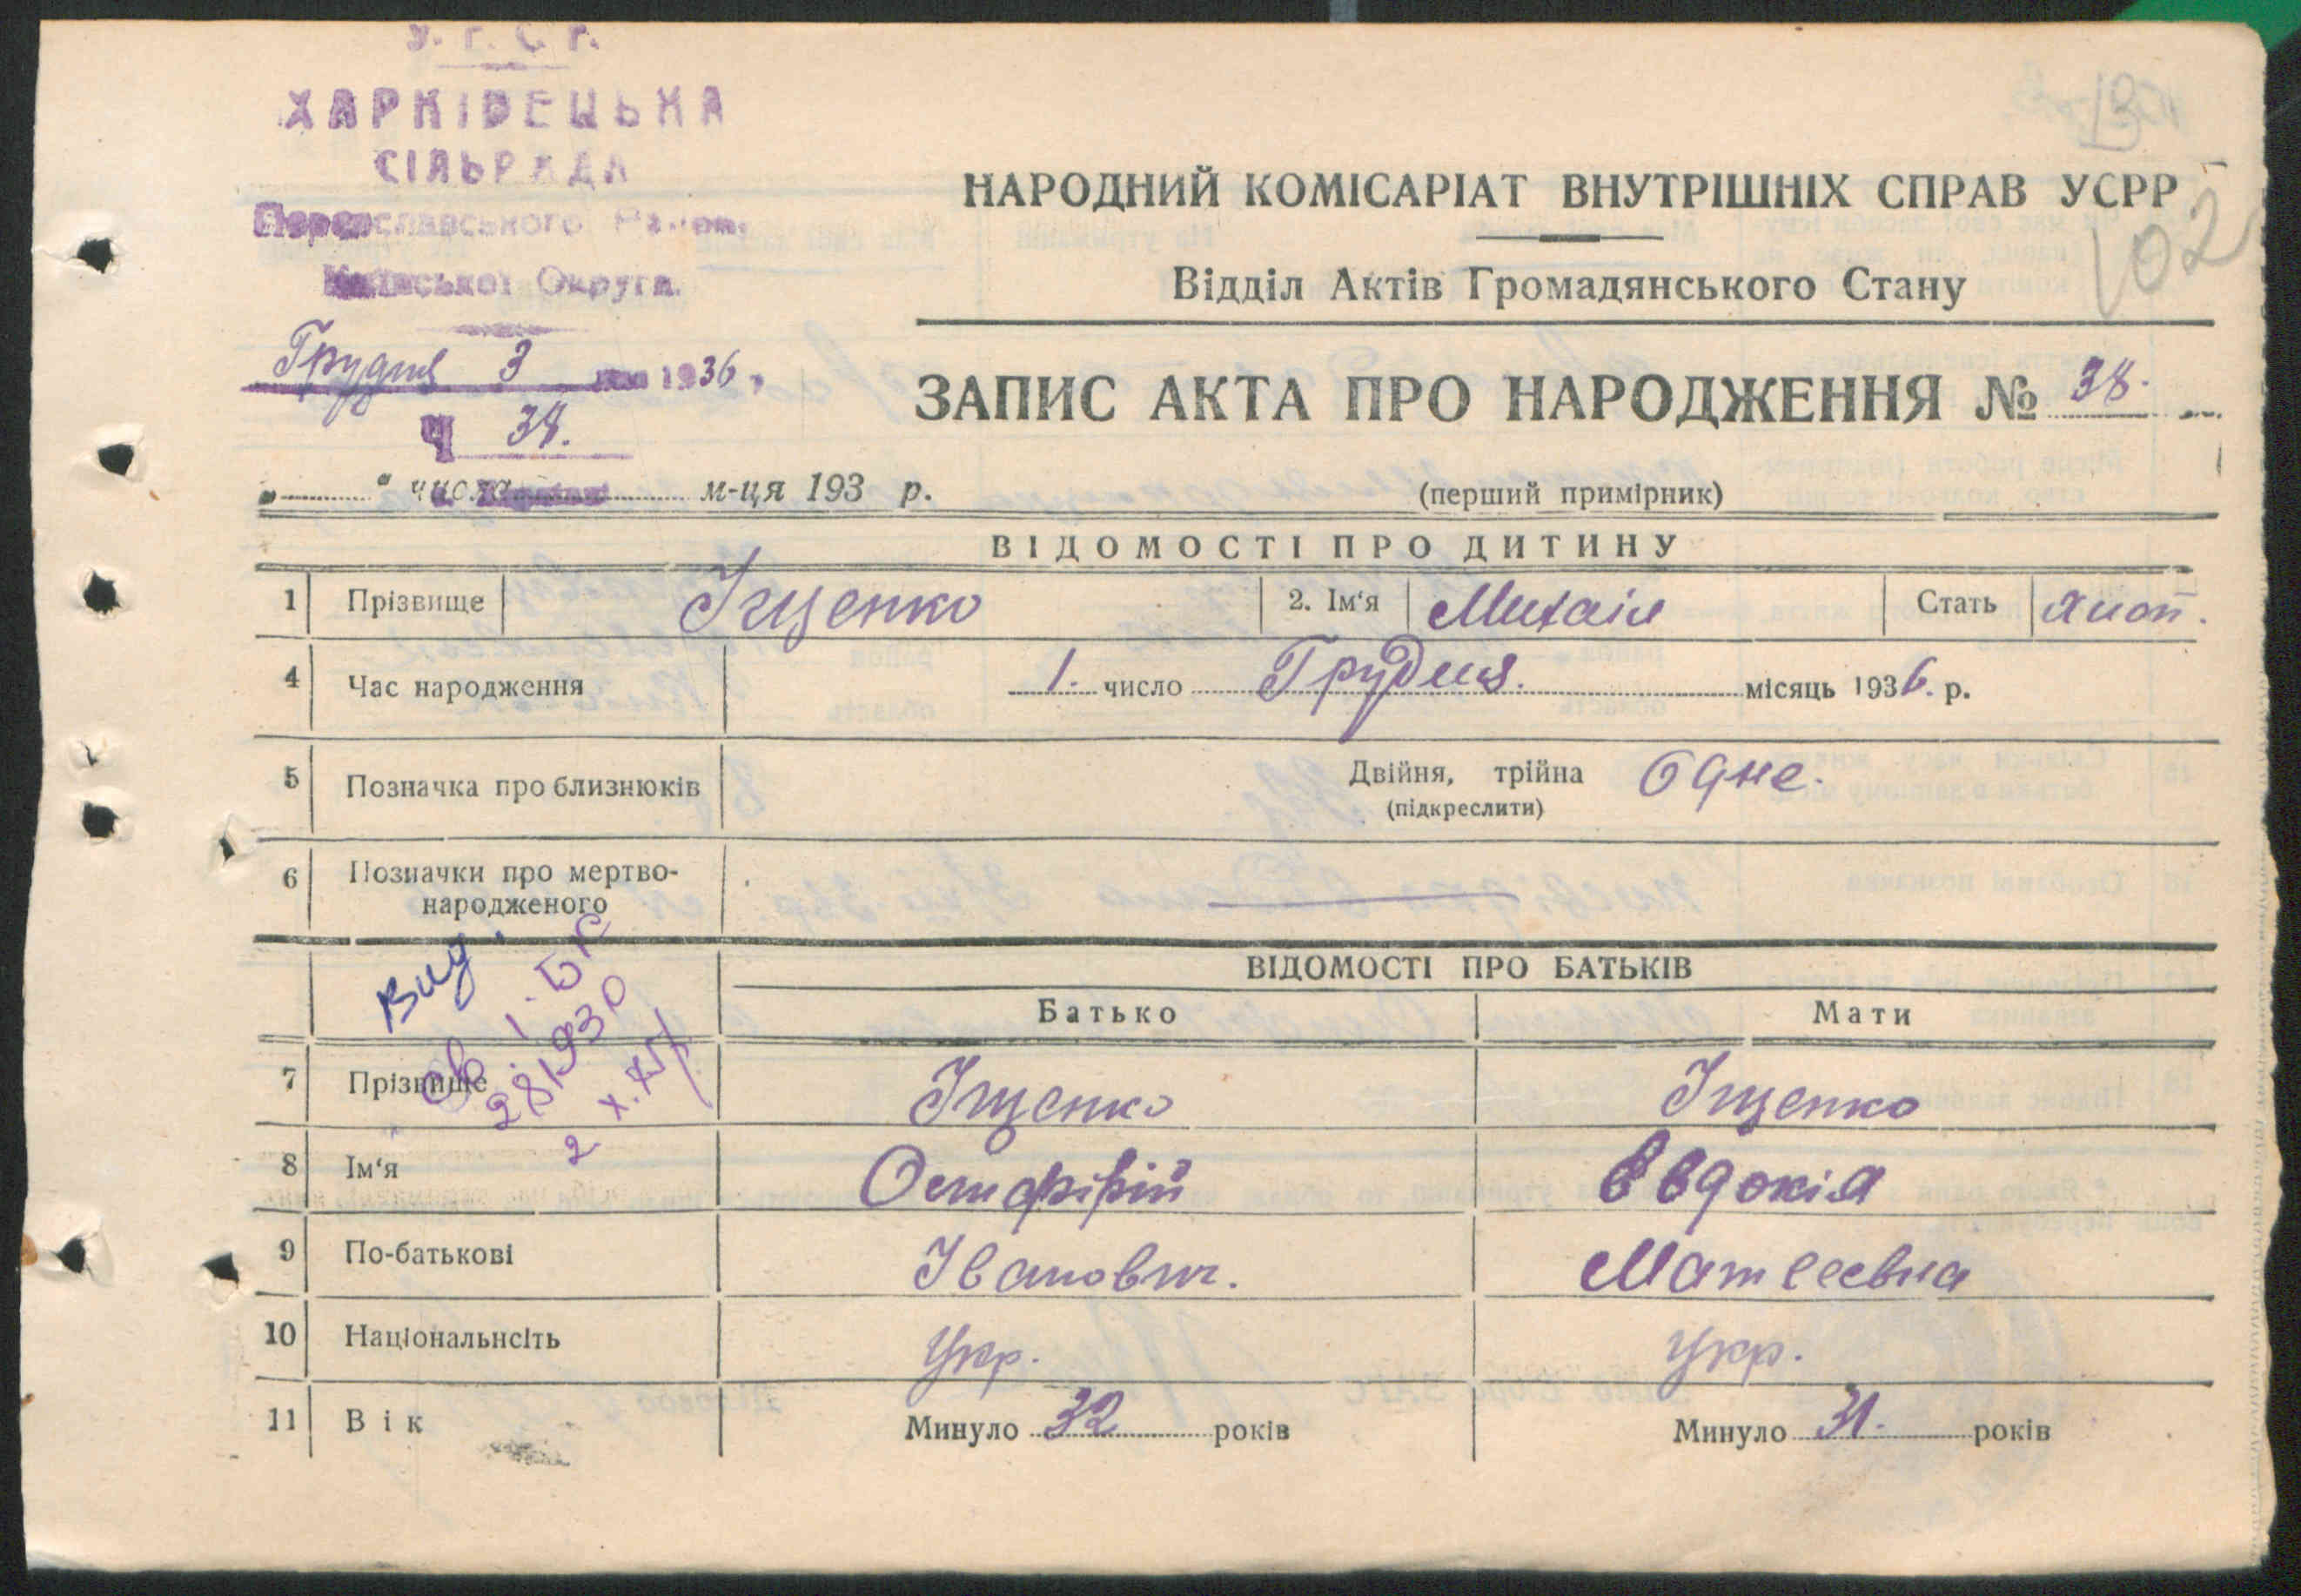 У. С. Р. Р.
ХАРКІВЕЦЬКА
СІЛЬРАДА
Переяславського Район.
Київської Округи.
Грудня 3 дня 1936 р.
Ч 38.
102
НАРОДНИЙ КОМІСАРІАТ ВНУТРІШНІХ СПРАВ УСРР
Відділ Актів Громадянського Стану
ЗАПИС АКТА ПРО НАРОДЖЕННЯ № 38.
„ “ числа м-ця 193 р.
(перший примірник)
ВІДОМОСТІ ПРО ДИТИНУ
1 Прізвище Іщенко 2. Ім‘я Михаіл Стать
4 Час народження 1. число Грудня. місяць 1936. р.
5 Позначка про близнюків Двійня, трійна Одне.
(підкреслити)
6 Позначки про мертво-
народженого
Вид.
св. 1. БК
281930
2 X.75
ВІДОМОСТІ ПРО БАТЬКІВ
Батько Мати
7 Прізвище Іщенко Іщенко
8 Ім‘я Євдокія
9 По-батькові Іванович. Матвеевна
10 Національнсіть Укр. Укр.
11 Вік Минуло 32 років Минуло 31. років